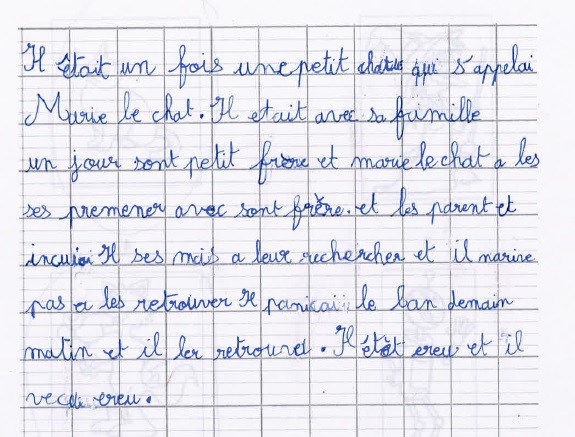 Il était un fois une petit chatue qui s'appelai
Murie le chat. Il etait avec sa fumille
un jour sont petit frère et marie le chat a les
ses premener avec sont frère. et les parent et
Il ses mis a leur rechercher et il narine
pas a les retrouver Il panicai le lan demain
matin et il les retrouvet. Il étét ereu et il
ereu.